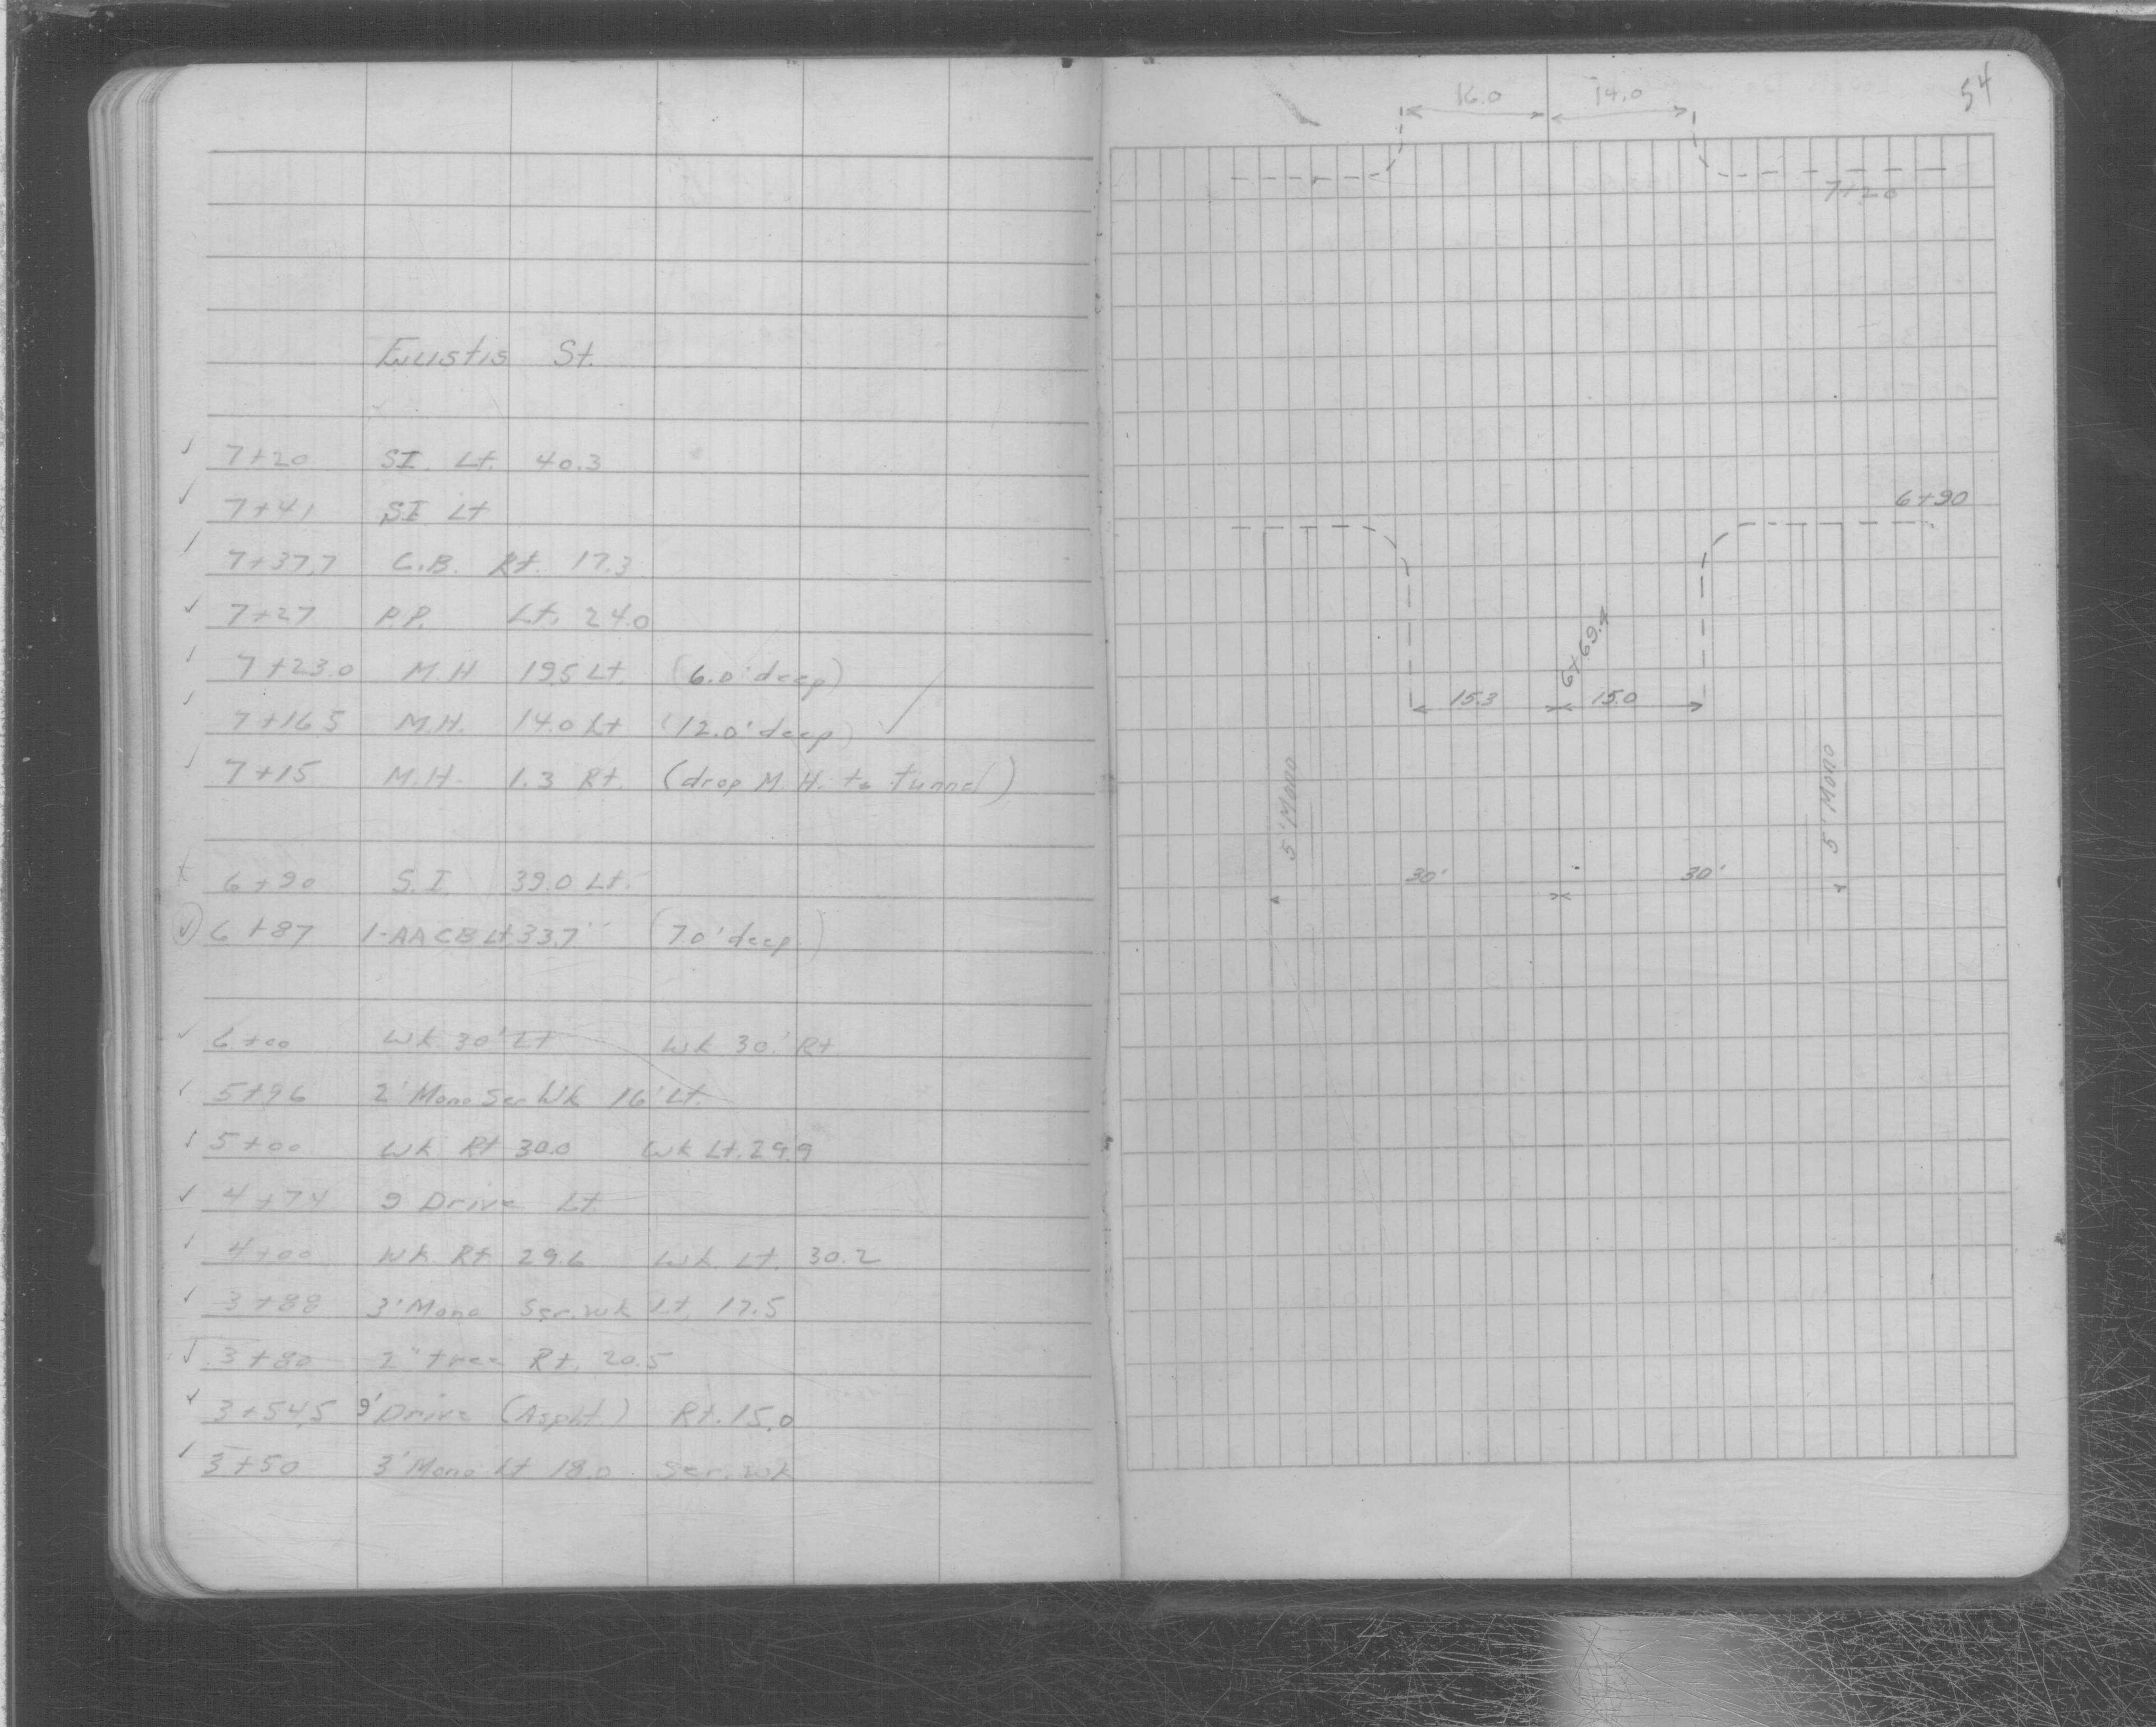 Eustis St.
7+20 SI. Lt. 40.3
7+41 SI Lt
7+37.7 C.B. Rt. 17.3
7+27 P.P. Lt. 24.0
7+23.0 M.H 19.5 Lt. (6.0' deep)
7+16.5 M.H. 14.0 Lt (12.0' deep)
7+15 M.H. 1.3 Rt. (drop M.H. to tunnel)
6+90 S.I. 39.0 Lt.
6+87 1-AA CB Lt 33.7 (7.0' deep)
6+00 Wk. 30' Lt Wk 30.' Rt
5+96 2' Mono Ser Wk 16' Lt.
5+00 Wk Rt 30.0 Wk Lt. 29.9
4+74 9 Drive Lt
4+00 Wk Rt 29.6 Wk. Lt. 30.2
3+88 3' Mono Ser. wk Lt. 17.5
3+80 2" tree Rt. 20.5
3+54.5 9' Drive (Aspht.) Rt. 15.0
3+50 3' Mono Lt 18.0 Ser. wk
54
16.0 14.0
7+20
6+90
6+69.4
15.3 15.0
5' Mono
5' Mono
30' 30'